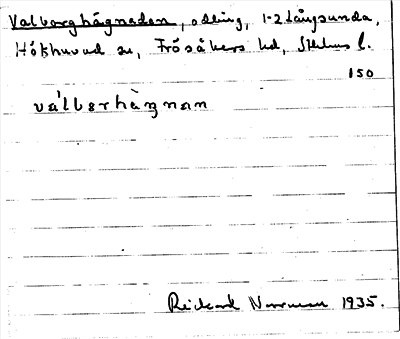 Valborghågnaden, odling, 1-2 Långsunda,
Hökhuvud sn, Frösåkers hd, Sthlms l.
150
válbərhàgnan
Rickard Norrman 1935.